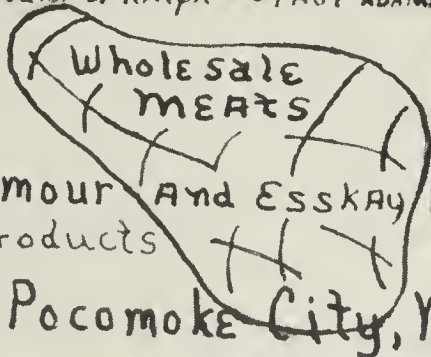 Wholesale
MEATS
mour And Esskay
roducts
Pocomoke City,